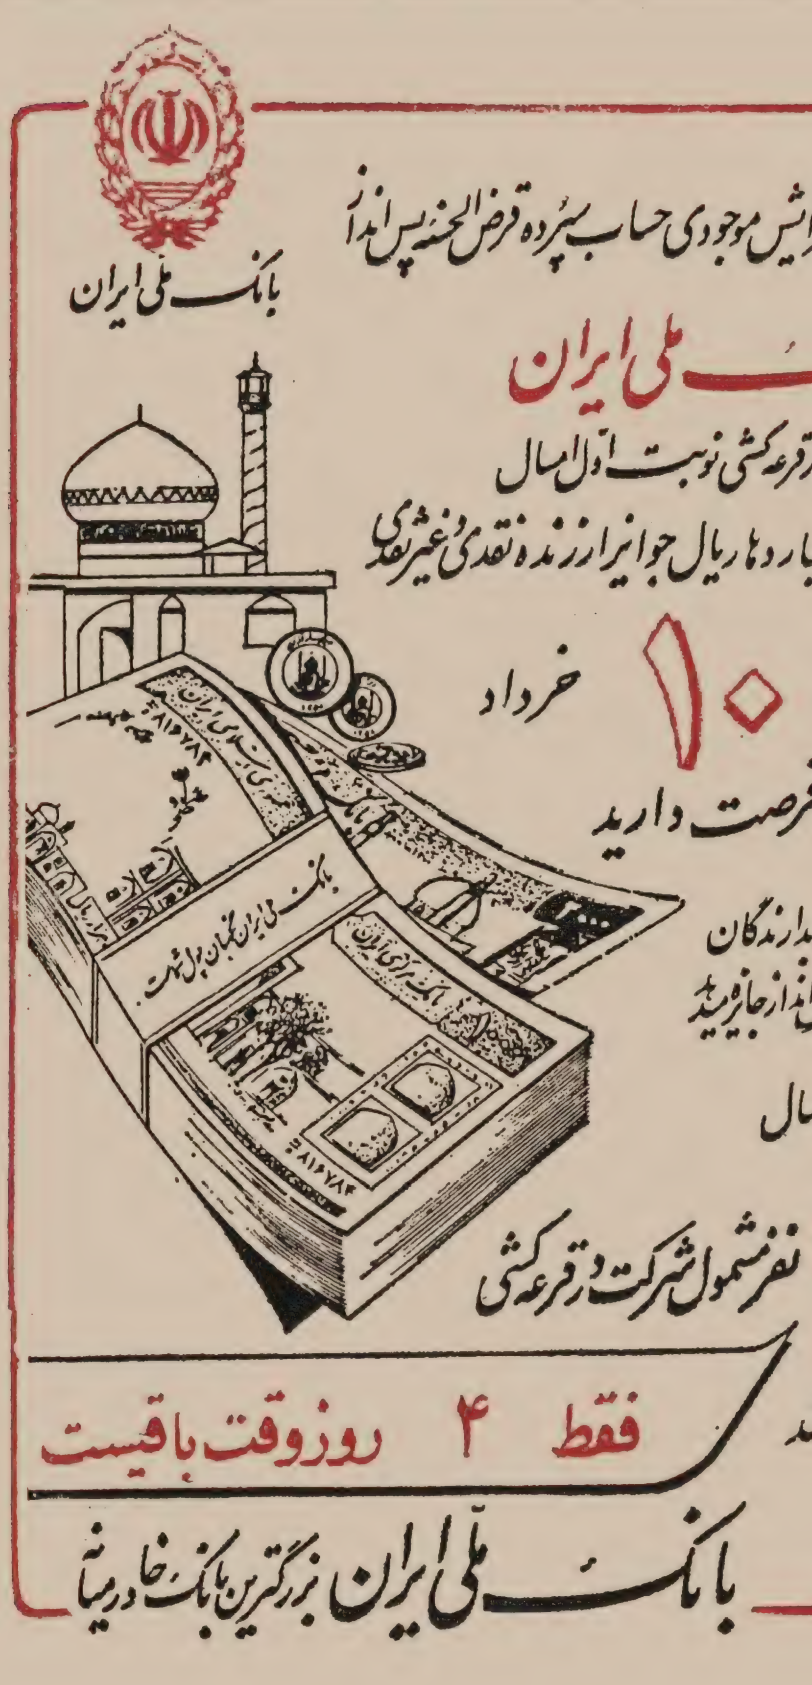 بانک ملی ایران
موجودی حساب سپرده قرض الحسنه پس انداز
ملی ایران
قرعه کشی نوبت اول امسال
ریال جوایز ارزنده نقدی و غیرنقدی
۱۰ خرداد
فرصت دارید
جایزه میدهد
نفر مشمول شرکت در قرعه کشی
فقط ۴ روز وقت باقیست
بانک ملی ایران بزرگترین بانک خاورمیانه
بانک ملی ایران نگهبان پول شماست.
بانک مرکزی ایران
۸۱۶۷۸۴
۸۱۶۷۸۴